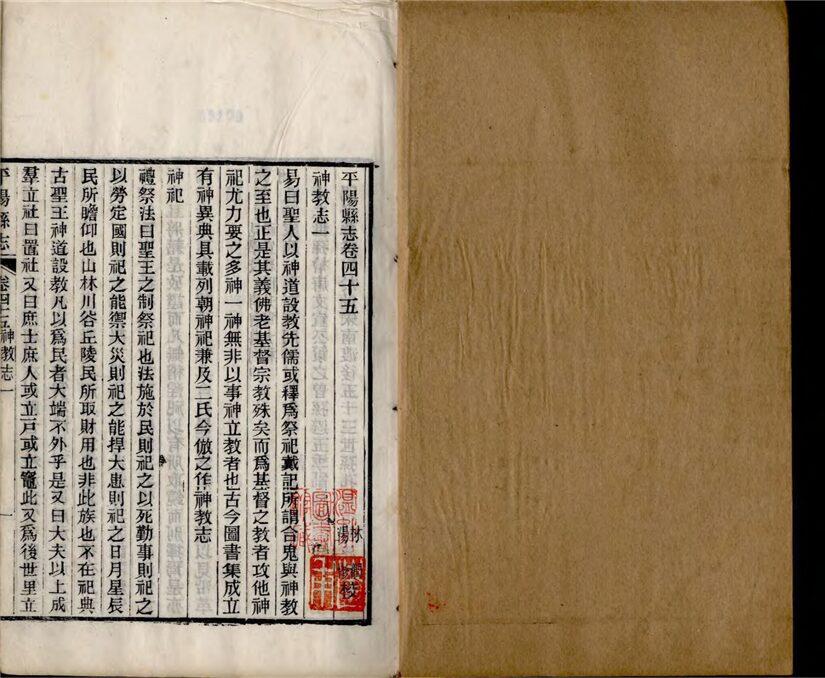 平陽縣志卷四十五
神教志一
易曰聖人以神道設教先儒或釋爲祭祀戴記所謂合鬼與神教
之至也正是其義佛老基督宗教殊矣而爲基督之教者攻他神
祀尤力要之多神一神無非以事神立教者也古今圖書集成立
有神異典具載列朝神祀兼及二氏今倣之作神教志
神祀
禮祭法曰聖王之制祭祀也法施於民則祀之以死勤事則祀之
以勞定國則祀之能禦大災則祀之能捍大患則祀之日月星辰
民所瞻仰也山林川谷丘陵民所取財用也非此族也不在祀典
古聖王神道設教凡以爲民者大端不外乎是又曰大夫以上成
羣立社曰置社又曰庶士庶人或立戸或立竈此又爲後世里立
平陽縣志 卷四十五 神教志一 一